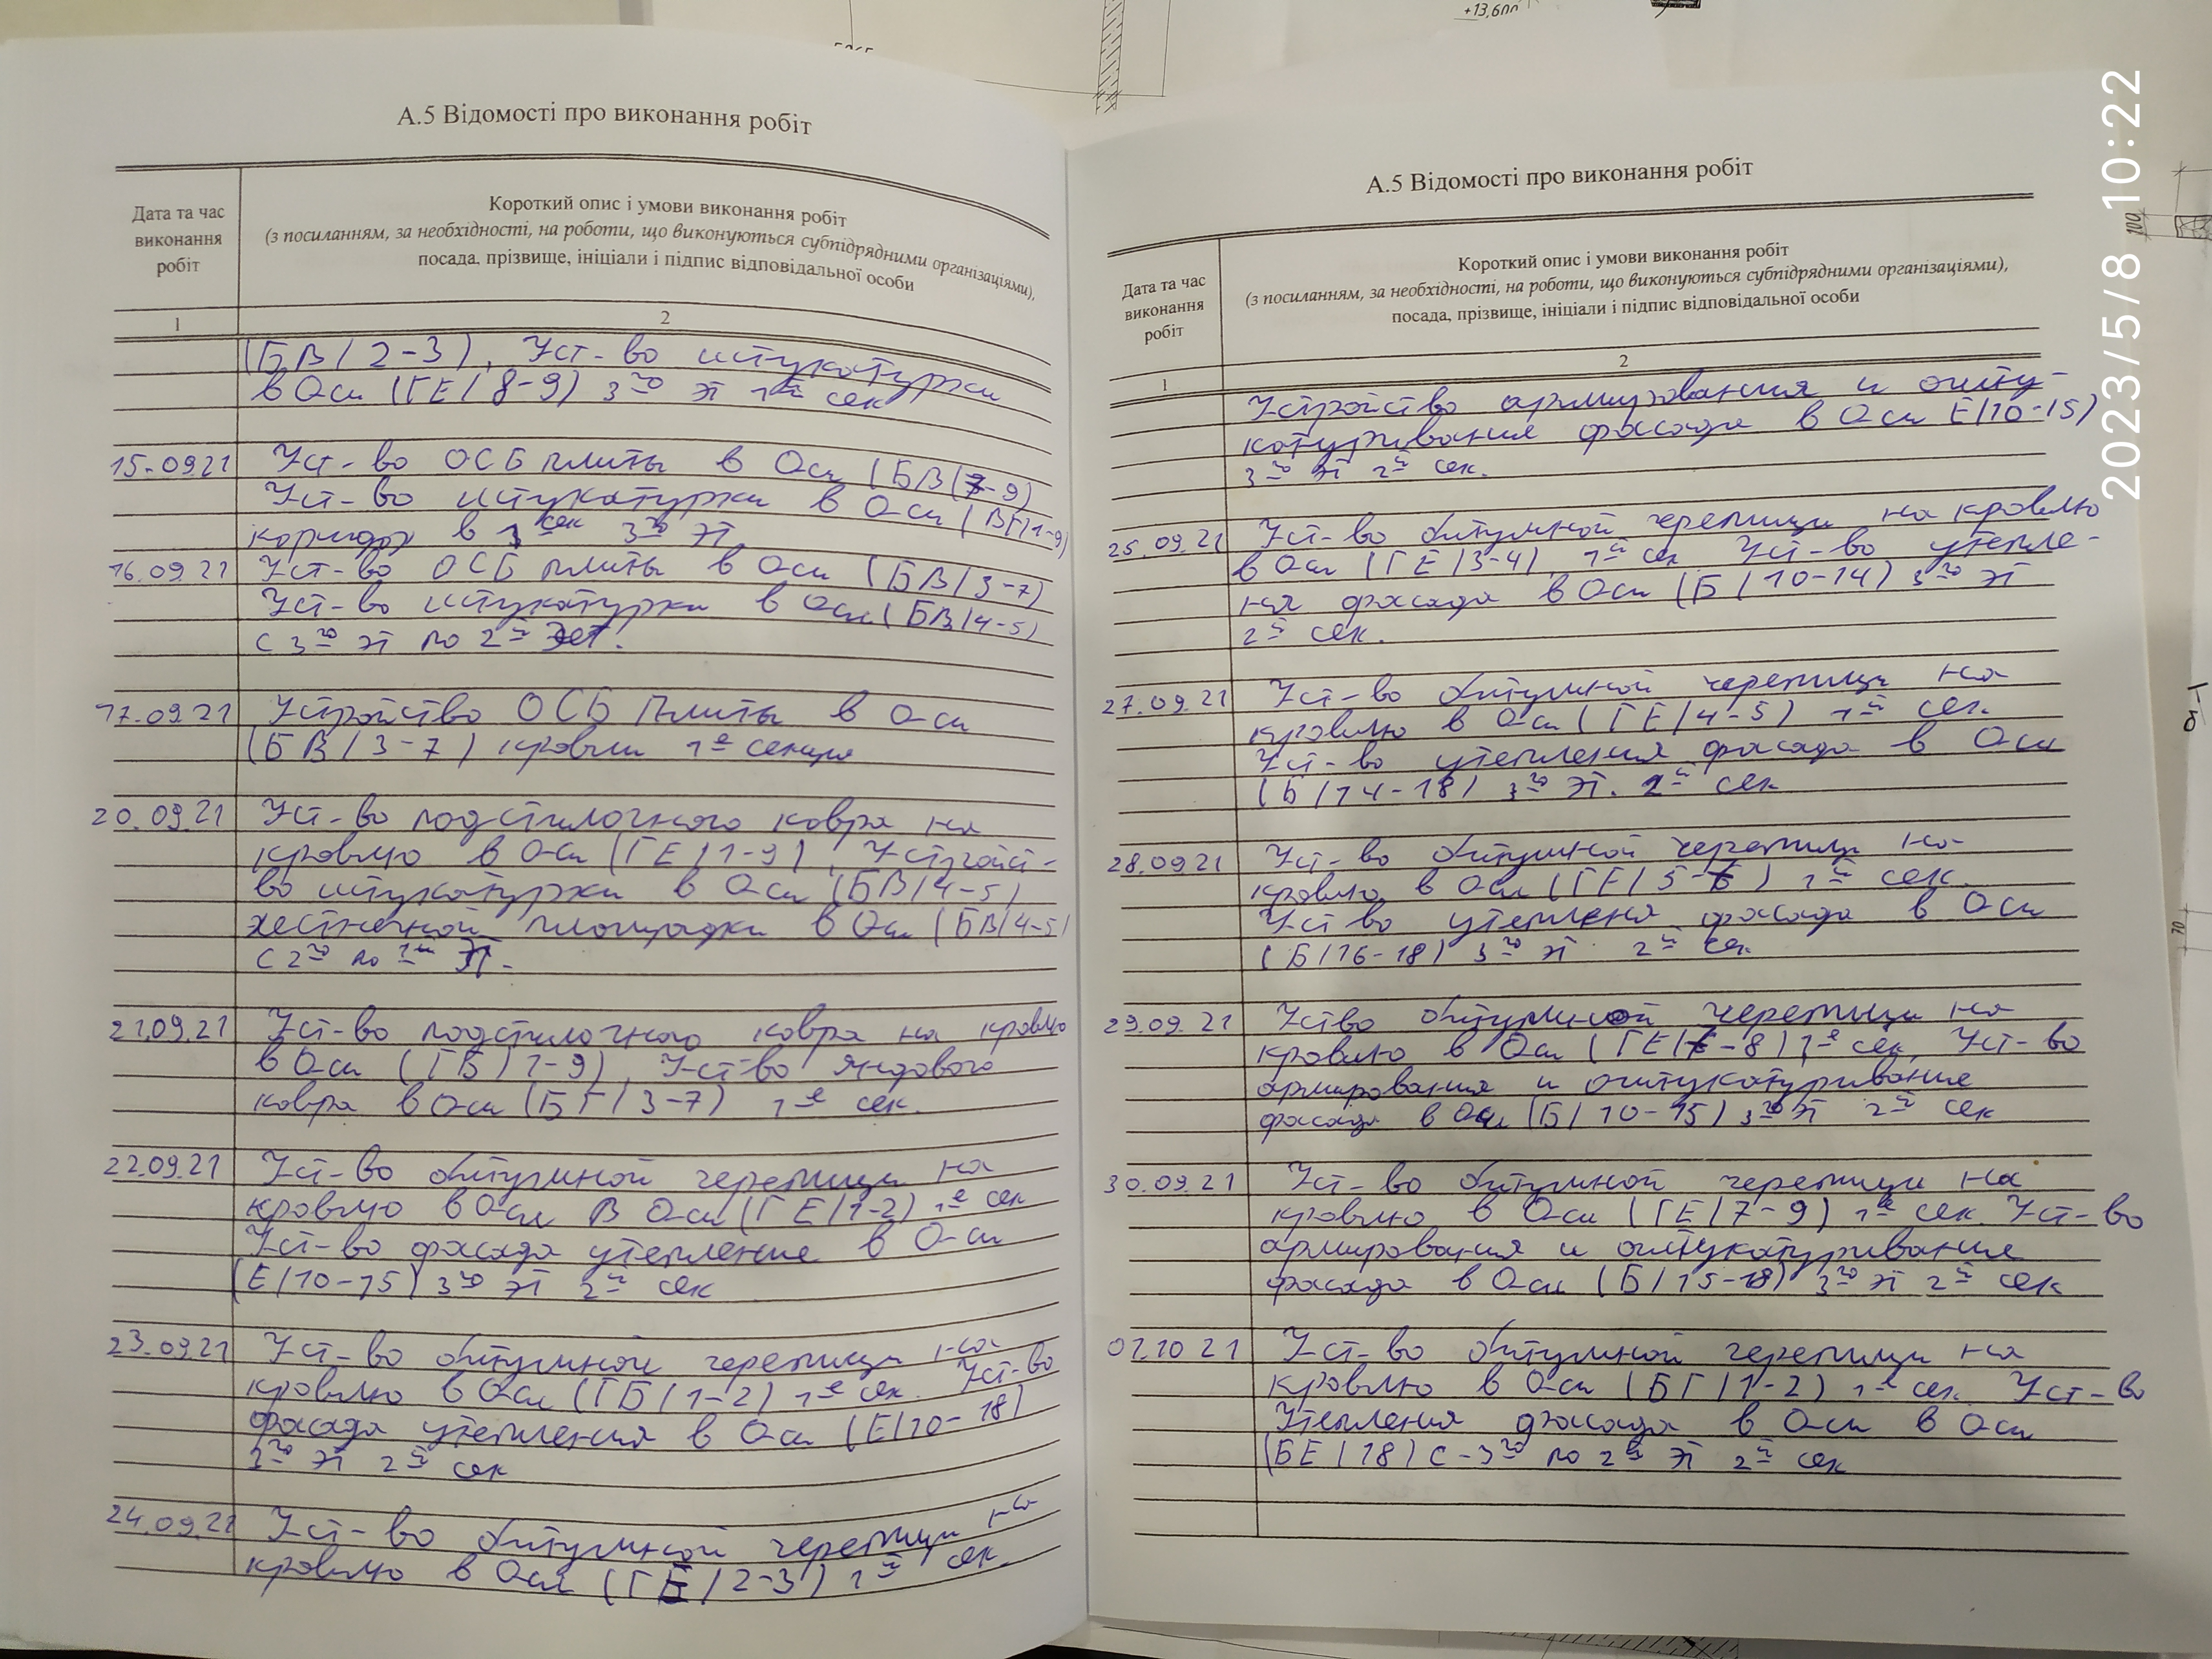 +13,600
А.5 Відомості про виконання робіт
Дата та час виконання робіт
Короткий опис і умови виконання робіт
(з посиланням, за необхідності, на роботи, що виконуються субпідрядними організаціями),
посада, прізвище, ініціали і підпис відповідальної особи
1 2
(БВ/2-3), Уст-во штукатурки
в Оси (ГЕ/8-9) 3го эт 1й сек
15.09.21 Уст-во ОСБ плиты в Оси (БВ/7-9)
Уст-во штукатурки в Оси (ВГ/1-9)
коридор в 1 сек 3го эт.
16.09.21 Уст-во ОСБ плиты в Оси (БВ/3-7)
Уст-во штукатурки в Оси (БВ/4-5)
с 3го эт по 2й эт.
17.09.21 Устройство ОСБ плиты в Оси
(БВ/3-7) кровли 1е секция
20.09.21 Уст-во подстилочного ковра на
кровлю в Оси (ГЕ/1-9), Устройст-
во штукатурки в Оси (БВ/4-5)
лестничной площадки в Оси (БВ/4-5)
с 2го по 1й эт.
21.09.21 Уст-во подстилочного ковра на кровлю
в Оси (ГБ/1-9), Уст-во яндового
ковра в Оси (БГ/3-7) 1е сек.
22.09.21 Уст-во битумной черепицы на
кровлю в Оси В Оси (ГЕ/1-2) 1е сек
Уст-во фасада утепление в Оси
(Е/10-15) 3го эт 2й сек
23.09.21 Уст-во битумной черепицы на
кровлю в Оси (ГБ/1-2) 1е сек. Уст-во
фасада утепления в Оси (Е/10-18)
3го эт 2й сек
24.09.21 Уст-во битумной черепицы на
кровлю в Оси (ГЕ/2-3) 1й сек.
А.5 Відомості про виконання робіт
Дата та час виконання робіт
Короткий опис і умови виконання робіт
(з посиланням, за необхідності, на роботи, що виконуються субпідрядними організаціями),
посада, прізвище, ініціали і підпис відповідальної особи
1 2
Устройство армирования и ошту-
катуривания фасада в Оси Е/10-15)
3го эт 2й сек.
25.09.21 Уст-во битумной черепицы на кровлю
в Оси (ГЕ/3-4), 1й сек Уст-во утепле-
ния фасада в Оси (Б/10-14) 3го эт
2й сек.
27.09.21 Уст-во битумной черепицы на
кровлю в Оси (ГЕ/4-5) 1й сек.
Уст-во утепления фасада в Оси
(Б/14-18) 3го эт. 2й сек
28.09.21 Уст-во битумной черепицы на
кровлю в Оси (ГЕ/5-6) 1й сек.
Уст-во утепленя фасада в Оси
(Б/16-18) 3го эт 2й сек
29.09.21 Уство битумной черепицы на
кровлю в Оси (ГЕ/ -8) 1е сек, Уст-во
армирования и оштукатуривание
фасада в Оси (Б/10-15) 3го эт 2й сек
30.09.21 Уст-во битумной черепицы на
кровлю в Оси (ГЕ/7-9) 1й сек. Уст-во
армирования и оштукатуривание
фасада в Оси (Б/15-18) 3го эт 2й сек
01.10 21 Уст-во битумной черепицы на
кровлю в Оси (БГ/1-2) 1е сек. Уст-во
Утепления фасада в Оси в Оси
(БЕ/18) с-3го по 2й эт 2й сек
2023/5/8 10:22
100
70